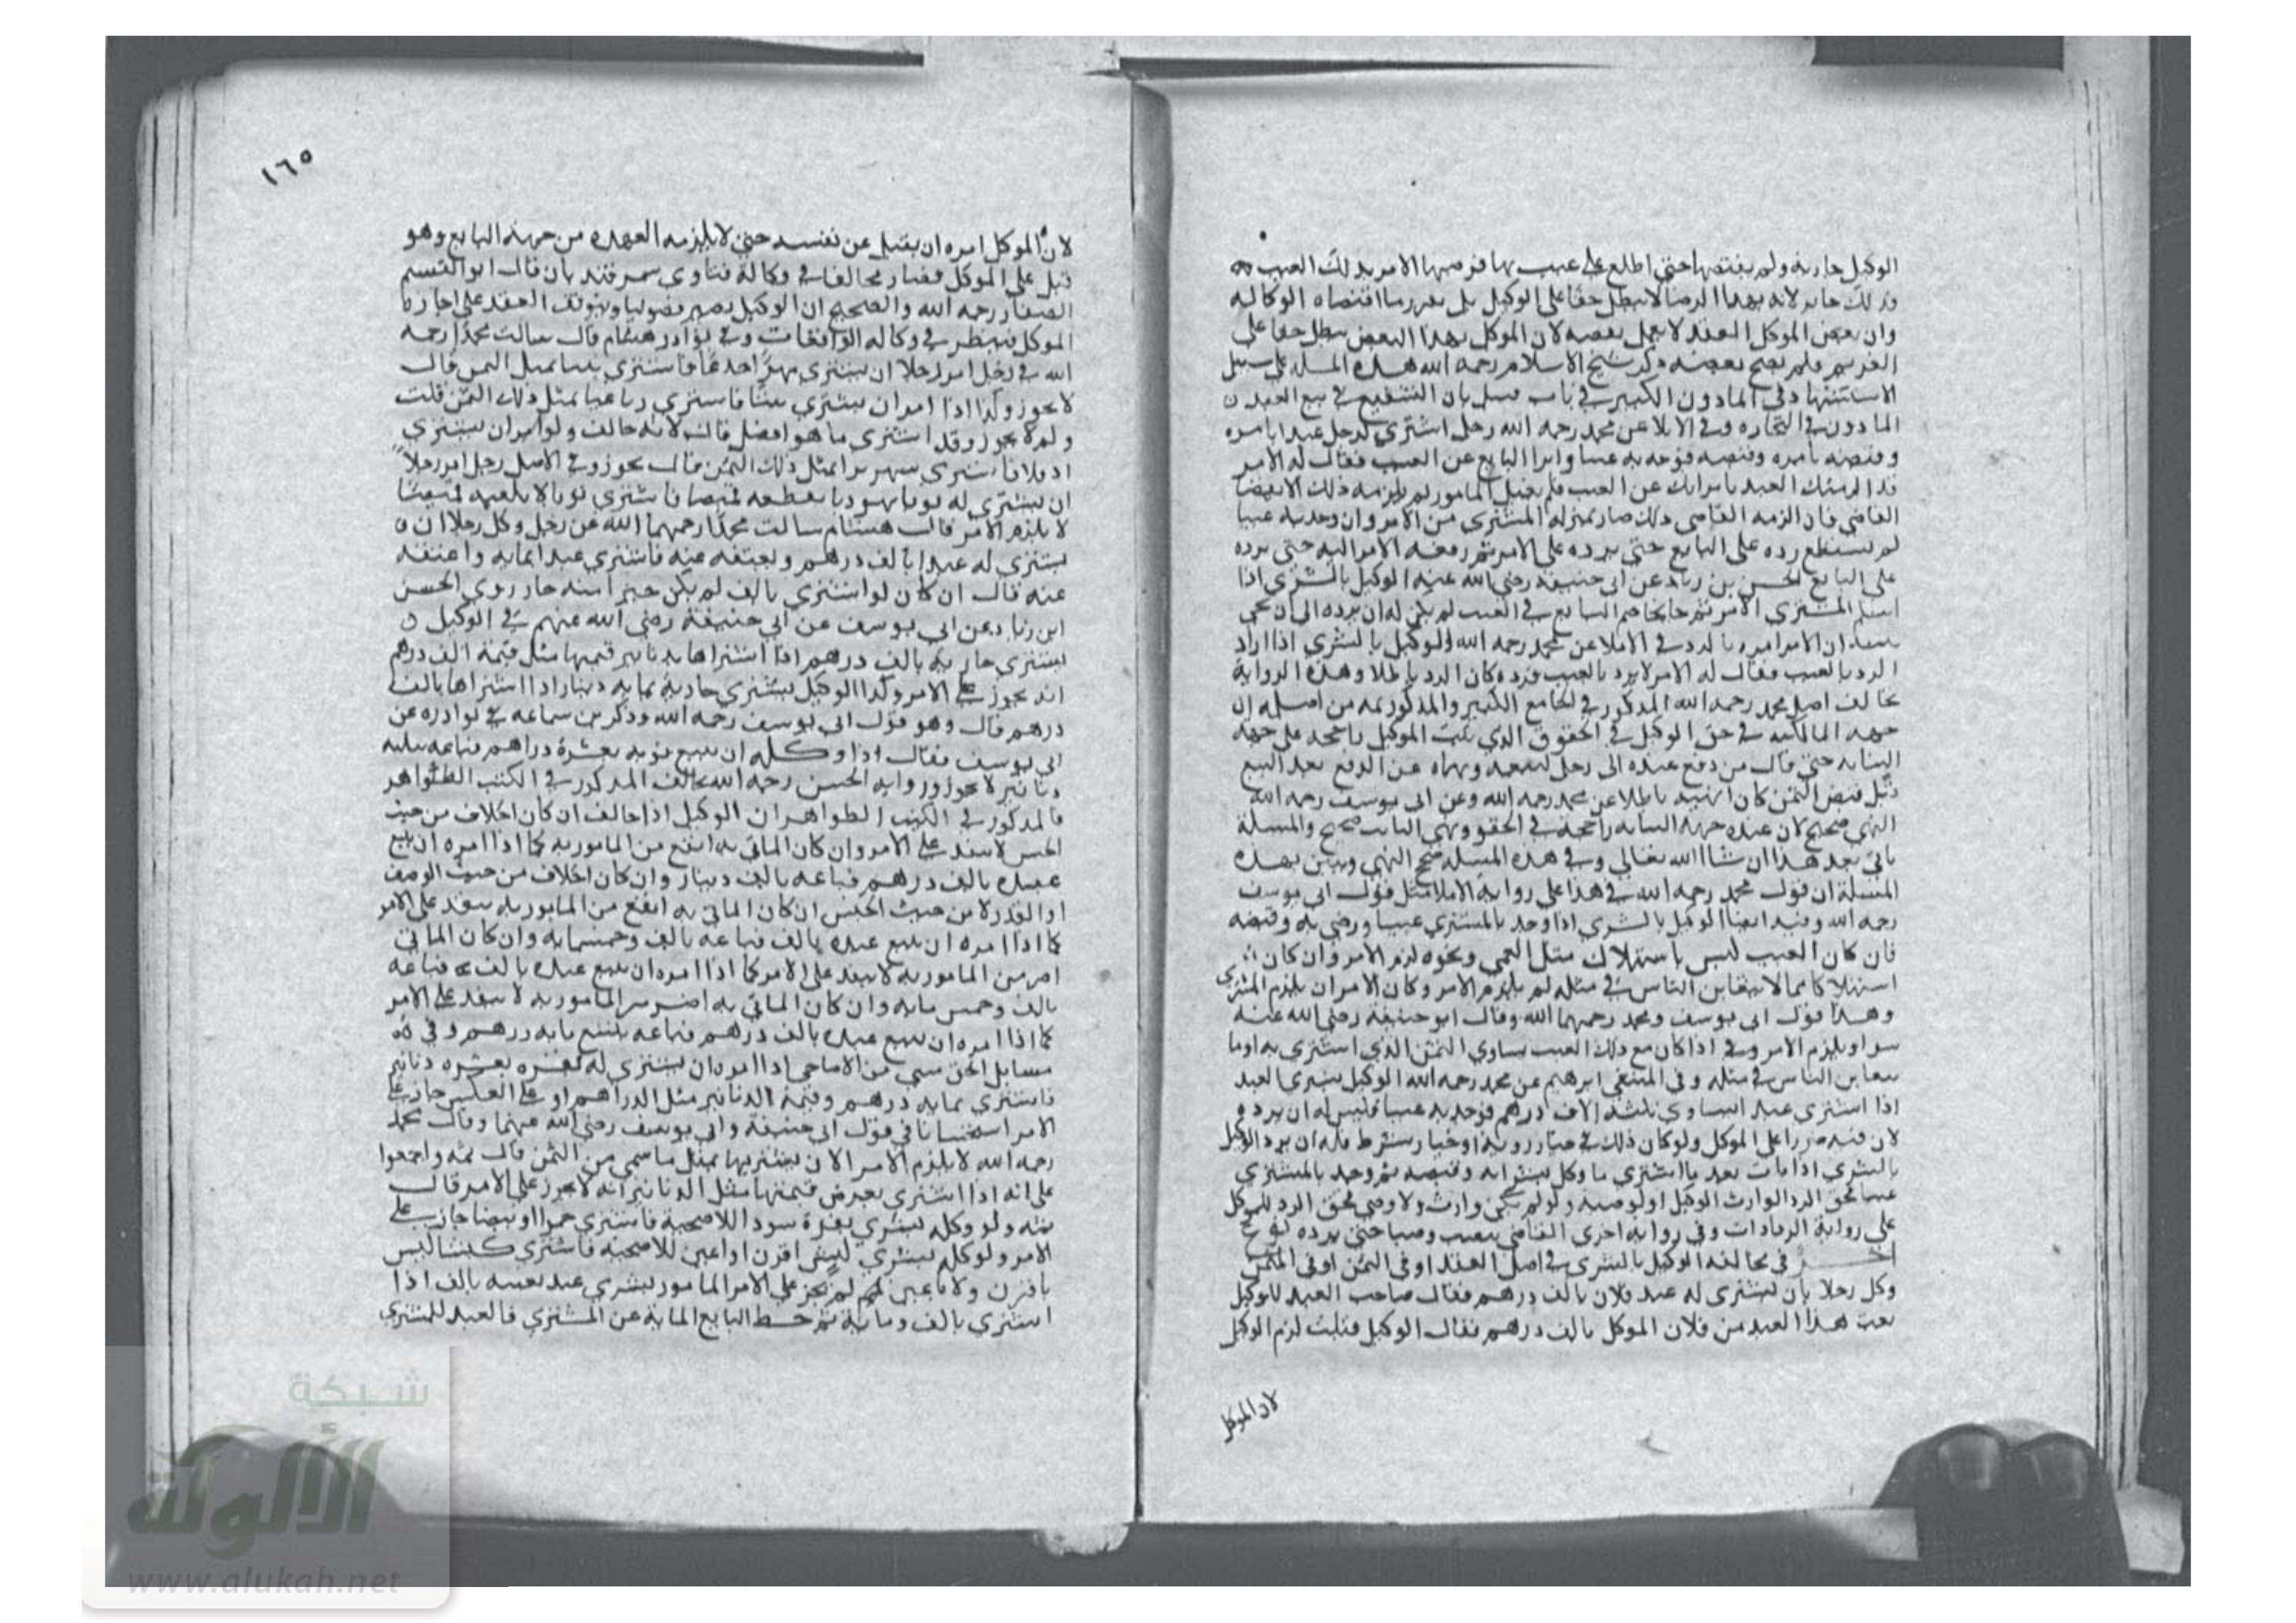 الوكيل جارية ولم يقبضها حتى اطلع على عيب بها فرضيها الامر بذلك العيب
فذلك جايز لانه بهذا الرضا لا يبطل حقا على الوكيل بل يقرر ما اقتضاه الوكالة
وان بعض الموكل العقد لا يعمل بعضه لان الموكل بهذا البعض يبطل حقا على
الغريم فلم يصح بعضه ذكر شيخ الاسلام رحمه الله هذه المسلة على سبيل
الاستشهاد في الماذون الكبير في باب قبل بان الشفيع في بيع العبد
الماذون في التجارة وفي الاملا عن محمد رحمه الله رجل اشترى لرجل عبدا بامره
وقبضه بامره وقبضه فوجد به عيبا وابرا البايع عن العيب فقال له الامر
قد الزمتك العبد بابرايك عن العيب فلم يقبل المامور لم يلزمه ذلك الا بقضا
القاضي فان الزمه القاضي ذلك صار بمنزلة المشتري من الامر وان وجد به عيبا
لم يستطع رده على البايع حتى يرده على الامر ثم رفعه الامر اليه حتى يرده
على البايع الحسن بن زياد عن ابي حنيفة رضي الله عنه الوكيل بالشرى اذا
اسلم المشترى الامر ثم جا يخاصم البايع في العيب لم يكن له ان يرده الى ان يجي
ان الامر امره بالرد وفي الاملا عن محمد رحمه الله الوكيل بالشرى اذا اراد
الرد بالعيب فقال له الامر لا يرد بالعيب فرده كان الرد باطلا وهذه الرواية
تخالف اصل محمد رحمه الله المذكور في الجامع الكبير والمذكور ثمه من اصله ان
جهة المالكية في حق الوكيل في الحقوق الذي يثبت الموكل راجحة على جهة
النيابة حتى قال من دفع عبده الى رجل ليبيعه ونهاه عن الدفع بعد البيع
قبل قبض الثمن كان النهي باطلا عن محمد رحمه الله وعن ابي يوسف رحمه الله
النهي صحيح لان عنده جهة النيابة راجحة في الحقوق ونهي النايب صحيح والمسلة
تاتي بعد هذا ان شا الله تعالى وفي هذه المسلة صح النهي وتبين بهذه
المسلة ان قول محمد رحمه الله في هذا على رواية الاملا مثل قول ابي يوسف
رحمه الله وفيه ايضا الوكيل بالشرى اذا وجد بالمشترى عيبا ورضي به وقبضه
فان كان العيب ليس باستهلاك مثل العمى ونحوه لزم الامر وان كان
استهلاكا مما لا يتغابن الناس في مثله لم يلزم الامر وكان للامر ان يلزم المشترى
وهذا قول ابي يوسف ومحمد رحمهما الله وقال ابو حنيفة رضي الله عنه
سوا ويلزم الامر وفي اذا كان مع ذلك العيب يساوي الثمن الذي اشترى به او ما
يتغابن الناس في مثله وفي المنتقى ابرهيم عن محمد رحمه الله الوكيل بشرى العبد
اذا اشترى عبدا يساوي بثلثة الاف درهم فوجد به عيبا فليس له ان يرده
لان فيه ضررا على الموكل ولو كان ذلك في خيار روية او خيار شرط فله ان يرد الوكيل
بالشرى اذا مات بعد ما اشترى ما وكل بشرائه وقبضه ثم وجد بالمشترى
عيبا فحق الرد لوارث الوكيل او لوصيه ولو لم يكن وارث ولا وصي فحق الرد للموكل
على رواية الزيادات وفي رواية اخرى القاضي ينصب وصيا حتى يرده نوع
اخر في مخالفة الوكيل بالشرى في اصل العقد او في الثمن او في المثمن
وكل رجلا بان يشترى له عبد فلان بالف درهم فقال صاحب العبد للوكيل
بعت هذا العبد من فلان الموكل بالف درهم فقال الوكيل قبلت لزم الوكيل
لان الموكل
١٦٥
لان الموكل امره ان يقبل عن نفسه حتى لا يلزمه العهدة من جهة البايع وهو
قبل على الموكل فصار مخالفا في وكالة فتاوي سمرقند بان قال ابو القسم
الصفار رحمه الله والصحيح ان الوكيل يصير فضوليا ويتوقف العقد على اجازة
الموكل فينظر في وكالة الواقعات وفي نوادر هشام قال سالت محمدا رحمه
الله في رجل امر رجلا ان يشترى فاشترى بمثل الثمن قال
لا يجوز وكذا اذا امر ان يشترى بيتا فاشترى بمثل ذلك الثمن قلت
ولم لا يجوز وقد اشترى ما هو افضل قال لانه خالف ولو امر ان يشترى
فاشترى بمثل ذلك الثمن قال يجوز وفي الاصل رجل امر رجلا
ان يشترى له ثوبا يهوديا يقطعه قميصا فاشترى ثوبا لا يكفيه قميصا
لا يلزم الامر قال هشام سالت محمدا رحمهما الله عن رجل وكل رجلا ان
يشترى له عبدا بالف درهم ويعتقه عنه فاشترى عبدا بمايه واعتقه
عنه قال ان كان لو اشترى بالف لم يكن خيرا منه جاز روي الحسن
ابن زياد عن ابي يوسف عن ابي حنيفة رضي الله عنهم في الوكيل
يشترى جارية بالف درهم اذا اشتراها بدنانير قيمتها مثل قيمة الف درهم
انه يجوز على الامر وكذا الوكيل يشترى جارية بمايه دينار اذا اشتراها بالف
درهم قال وهو قول ابي يوسف رحمه الله وذكر بن سماعه في نوادره عن
ابي يوسف فقال اذا وكله ان يبيع ثوبه بعشرة دراهم فباعه بثلثه
دنانير لا يجوز ورواية الحسن رحمه الله تخالف المذكور في الكتب الظواهر
فالمذكور في الكتب الظواهر ان الوكيل اذا خالف ان كان الخلاف من حيث
الجنس لا ينفذ على الامر وان كان الماتي به انفع من المامور به كما اذا امره ان يبيع
عبده بالف درهم فباعه بالف دينار وان كان الخلاف من حيث الوصف
او القدر لا من حيث الجنس ان كان الماتي به انفع من المامور به ينفذ على الامر
كما اذا امره ان يبيع عبده بالف فباعه بالف وخمسمايه وان كان الماتي
اضر من المامور به لا ينفذ على الامر كما اذا امره ان يبيع عبده بالف فباعه
بالف وخمس مايه وان كان الماتي به اضر من المامور به لا ينفذ على الامر
كما اذا امره ان يبيع عبده بالف درهم فباعه بتسع مايه درهم وفي
مسايل الحق شي من الاضاحي اذا امره ان يشترى له بقرة بعشره دنانير
فاشترى بمايه درهم وقيمة الدنانير مثل الدراهم او على العكس جاز على
الامر استحسانا في قول ابي حنيفة وابي يوسف رضي الله عنهما وقال محمد
رحمه الله لا يلزم الامر الا ان يشتريها بمثل ما سمى من الثمن قال ثمه واجمعوا
على انه اذا اشترى بعرض قيمتها مثل الدنانير انه لا يجوز على الامر قال
ثمه ولو وكله بشرى بقرة سودا للاضحية فاشترى حمرا او بيضا جاز على
الامر ولو وكله بشرى كبش اقرن او اعين للاضحية فاشترى كبشا ليس
باقرن ولا باعين لم يجز على الامر المامور بشرى عبد بعينه بالف اذا
اشترى بالف ومايه ثم حط البايع المايه عن المشترى فالعبد للمشترى
شبكة
الألوكة
www.alukah.net